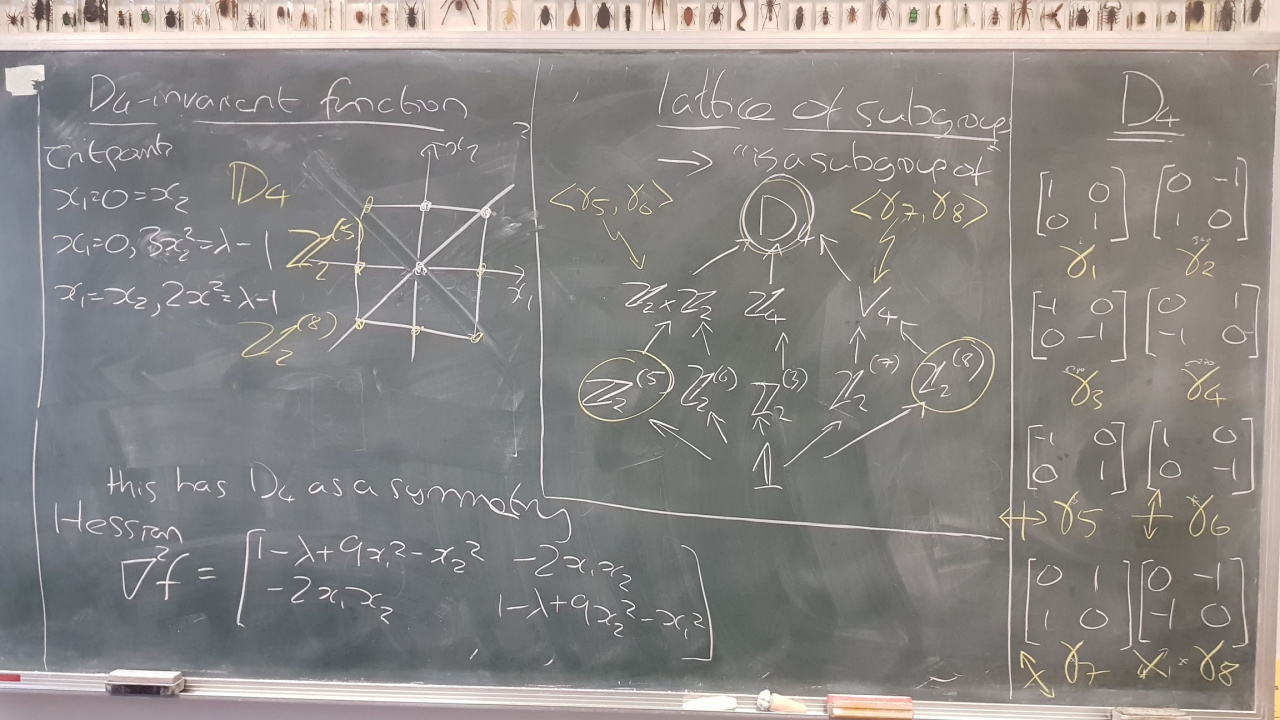 D₄-invariant function
Critpoints
x₁=0=x₂
x₁=0, 3x₂²=λ-1
x₁=x₂, 2x²=λ-1
D₄
ℤ₂⁽⁵⁾
ℤ₂⁽⁸⁾
x₂
x₁
this has D₄ as a symmetry
Hessian
∇²f = [1-λ+9x₁²-x₂² -2x₁x₂
-2x₁x₂ 1-λ+9x₂²-x₁²]
lattice of subgroups
→ "is a subgroup of"
<γ₅, γ₆> D <γ₇, γ₈>
ℤ₂×ℤ₂ ℤ₄ V₄
ℤ₂⁽⁵⁾ ℤ₂⁽⁶⁾ ℤ₂⁽³⁾ ℤ₂⁽⁷⁾ ℤ₂⁽⁸⁾
1
D₄
[1 0 [0 -1
0 1] 1 0]
γ₁ γ₂
[-1 0 [0 1
0 -1] -1 0]
γ₃ γ₄
[-1 0 [1 0
0 1] 0 -1]
↔ γ₅ ↕ γ₆
[0 1 [0 -1
1 0] -1 0]
γ₇ γ₈